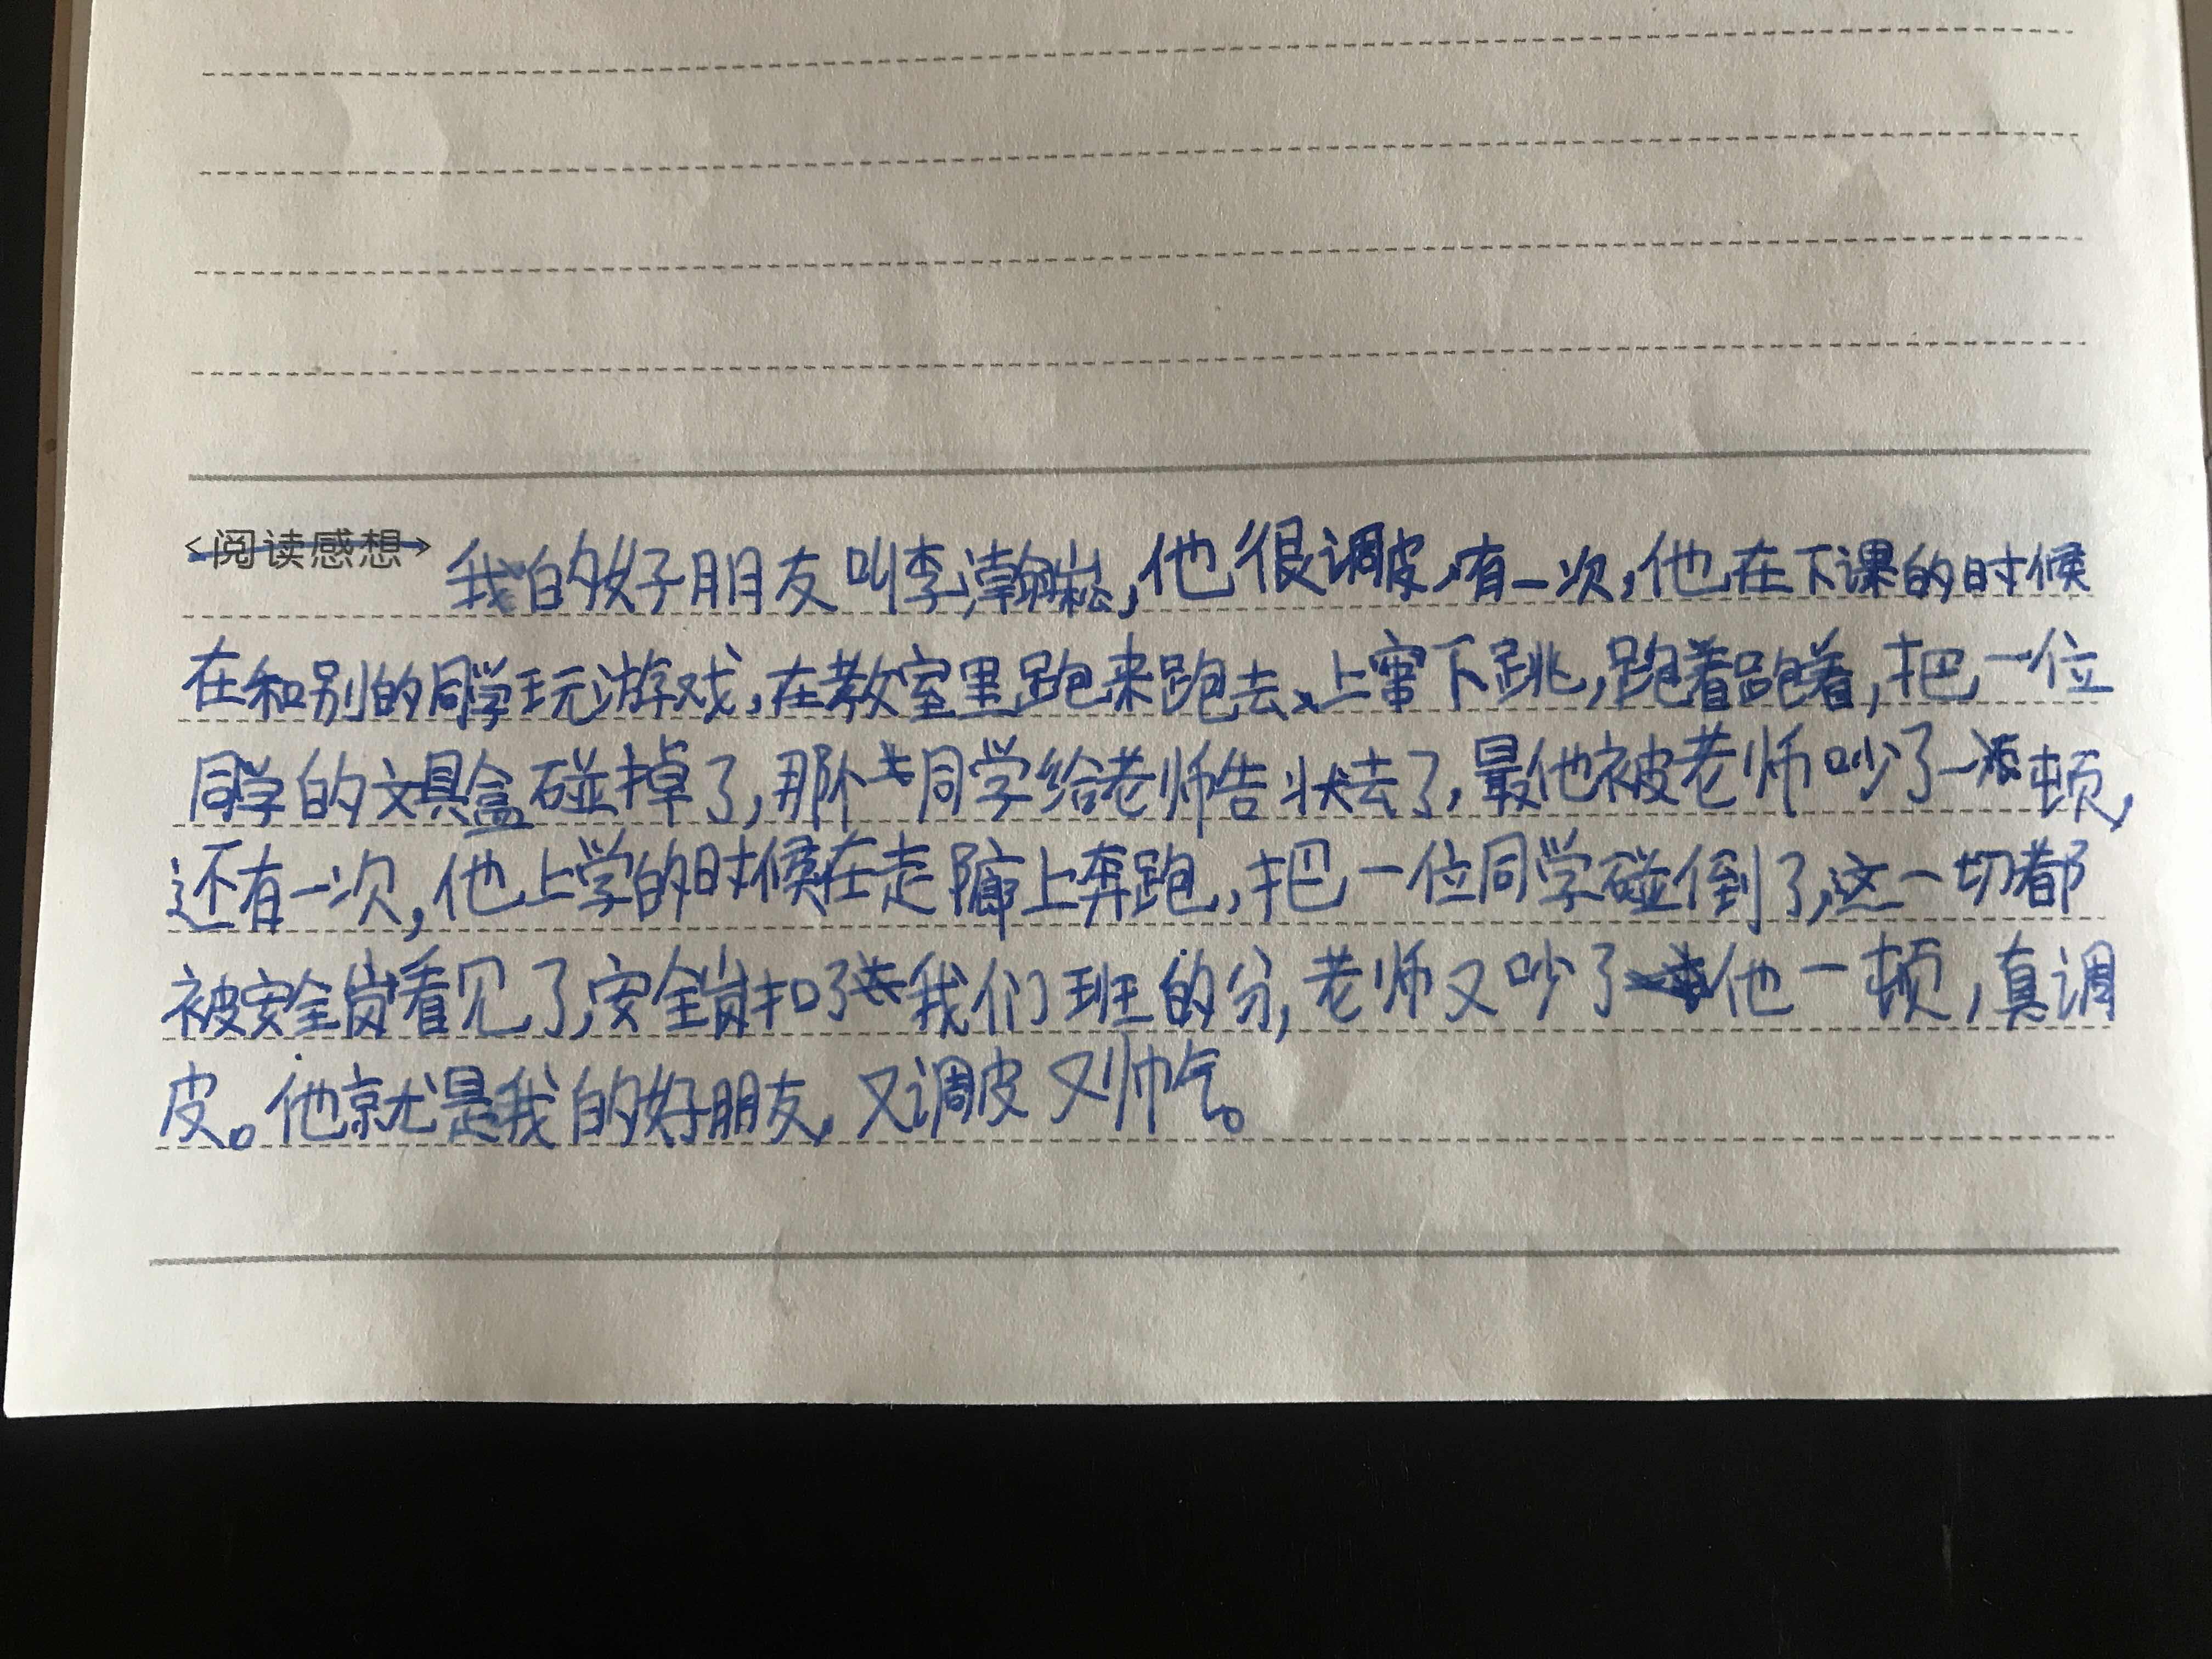 <阅读感想> 我的好朋友叫李瀚崧,他很调皮,有一次,他在下课的时候
在和别的同学玩游戏,在教室里跑来跑去、上窜下跳,跑着跑着,把一位
同学的文具盒碰掉了,那个同学给老师告状去了,最他被老师吵了一顿,
还有一次,他上学的时候在走廊上奔跑,把一位同学碰倒了,这一切都
被安全岗看见了,安全岗扣了我们班的分,老师又吵了他一顿,真调
皮。他就是我的好朋友,又调皮又帅气。